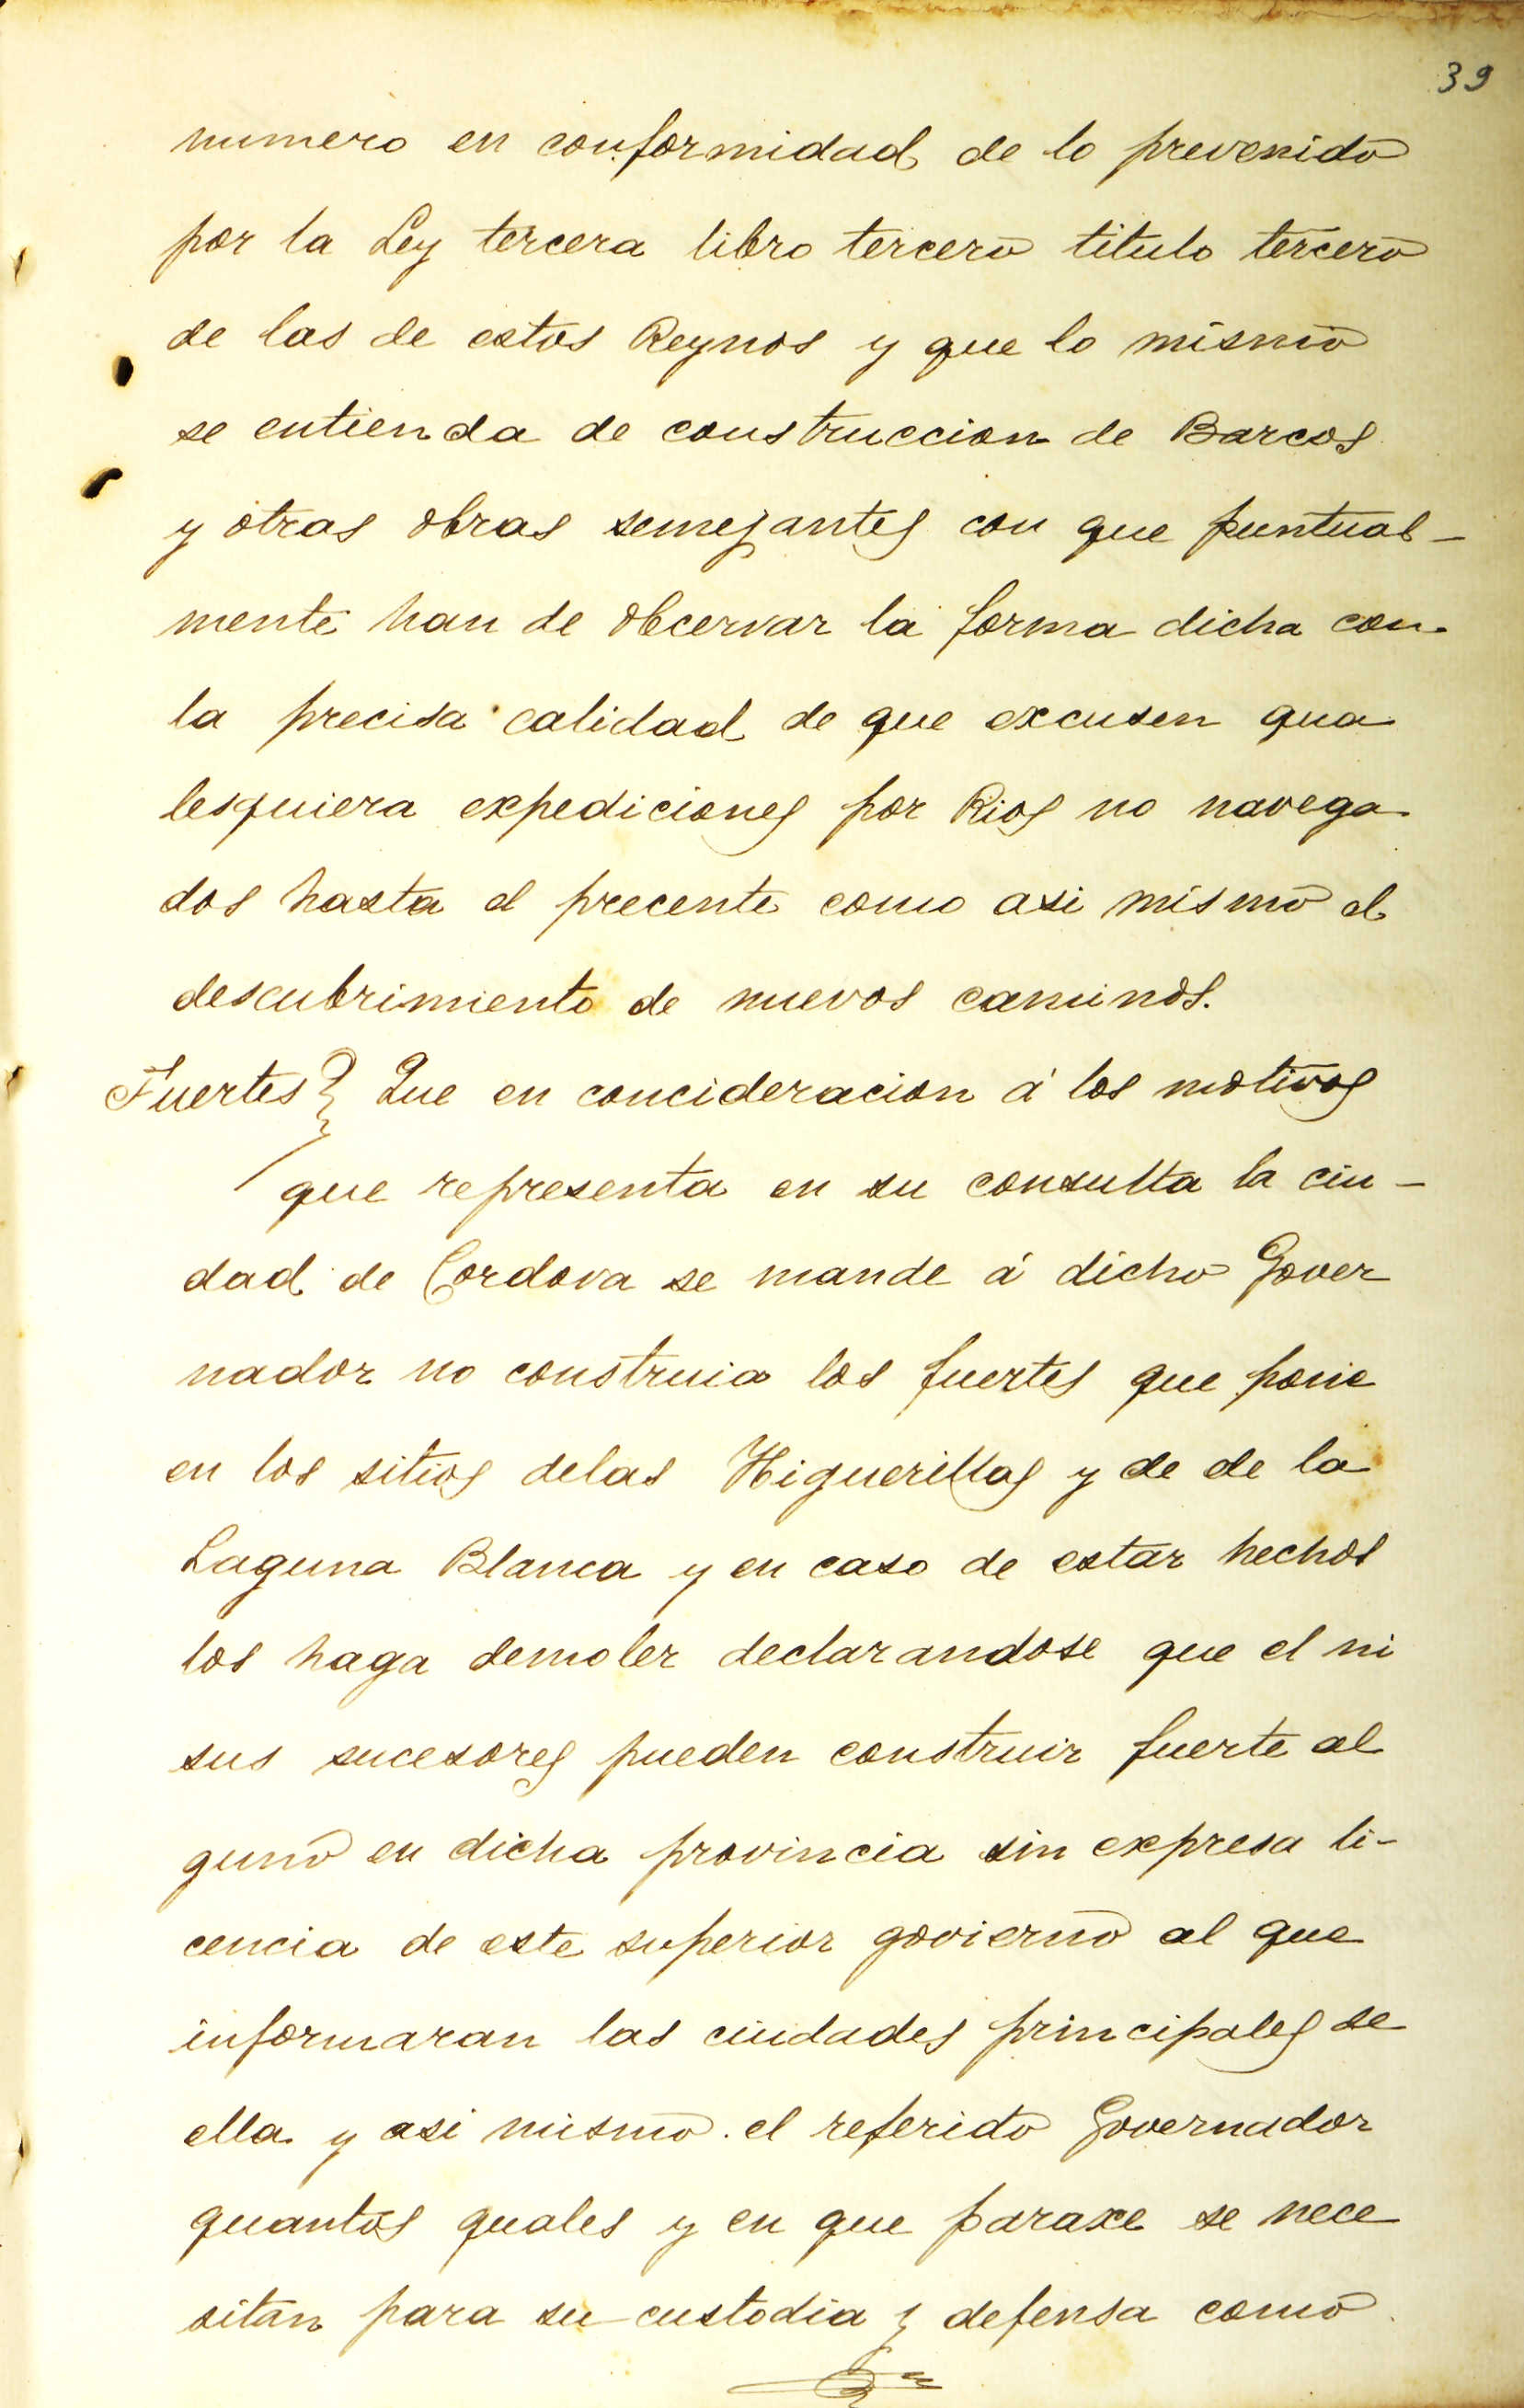 39
numero en conformidad de lo prevenido
por la Ley tercera libro tercero titulo tercero
de las de estos Reynos y que lo mismo
se entienda de construccion de Barcos
y otras obras semejantes con que puntual-
mente han de obcervar la forma dicha con
la precisa calidad de que excusen qua
lesquiera expediciones por Rios no navega
dos hasta el precente como asi mismo el
descubrimiento de nuevos caminos.
Fuertes } Que en concideracion á los motivos
que representa en su consulta la ciu-
dad de Cordova se mande á dicho Gover
nador no construia los fuertes que pone
en los sitios delas Higuerillas y de de la
Laguna Blanca y en caso de estar hechos
los haga demoler declarandose que el ni
sus sucesores pueden construir fuerte al
guno en dicha provincia sin expresa li-
cencia de este superior govierno al que
informaran las ciudades principales de
ella y asi mismo el referido Governador
quantos quales y en que paraxe se nece
sitan para su custodia y defensa como